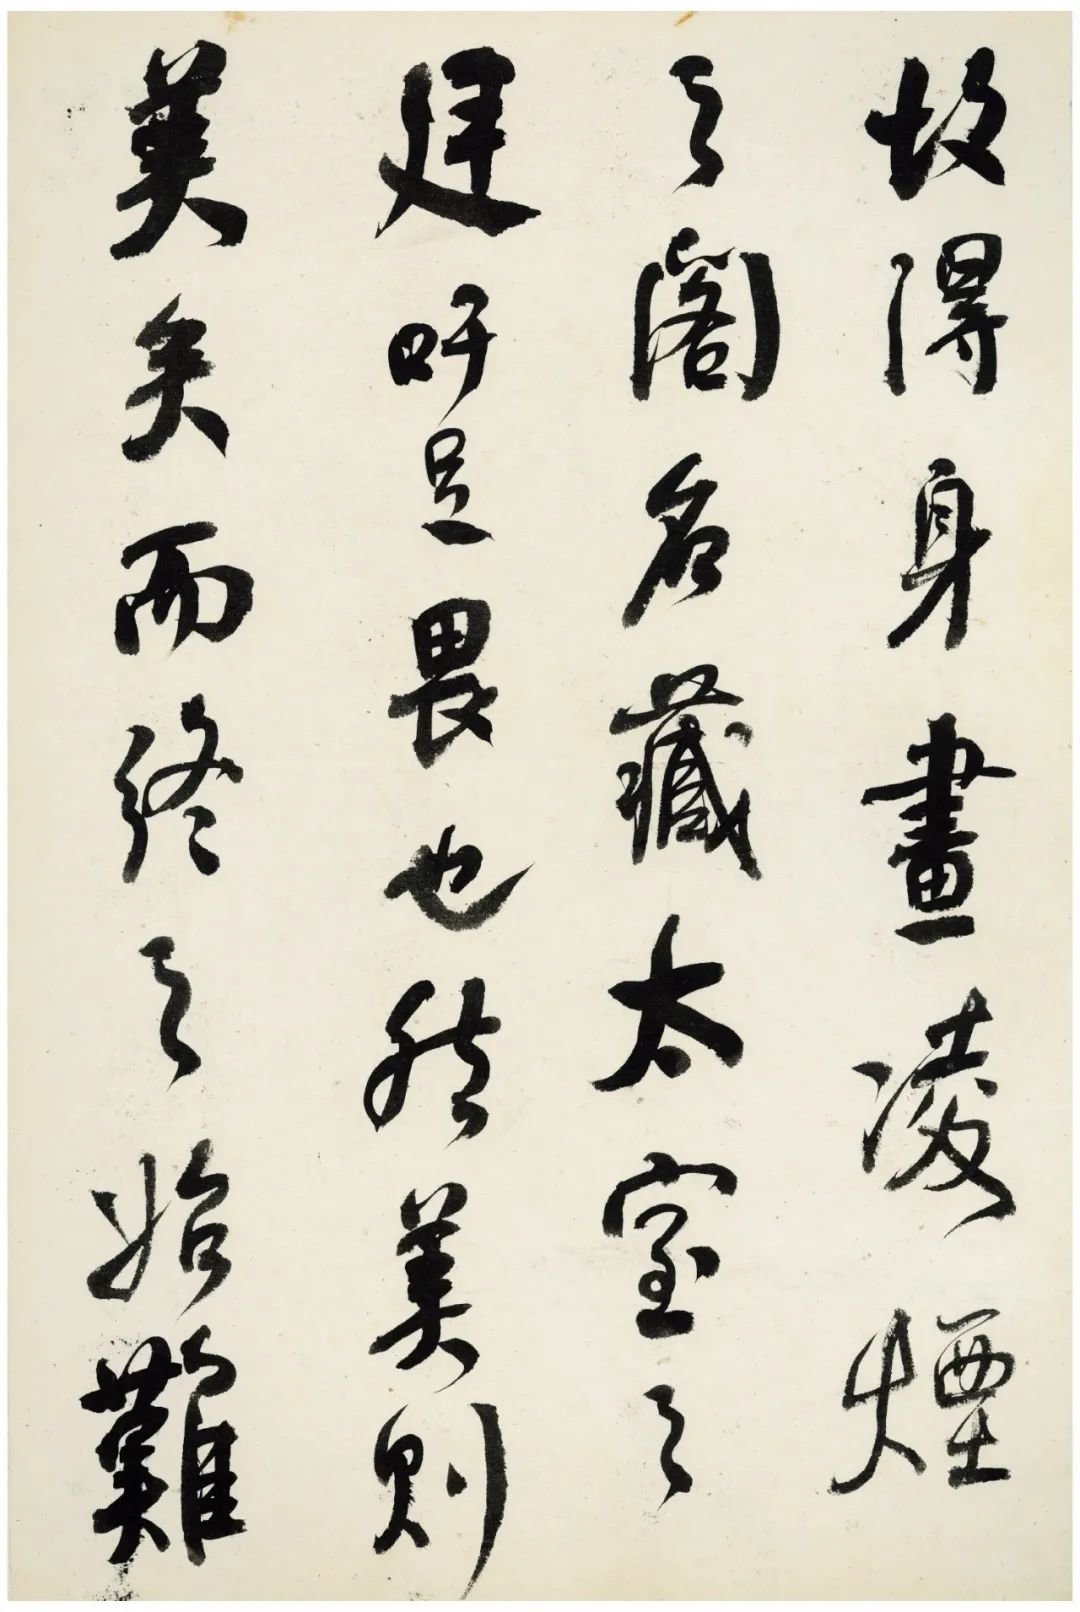 故得身畫凌煙
之閣名藏太室之
廷吁足畏也然美則
美矣而終之始難